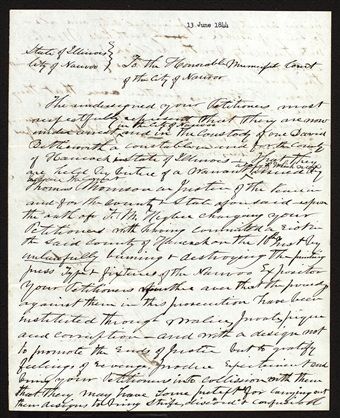 13 June 1844
State of Illinois }
City of Nauvoo } To the Honorable Municipal Court
of the City of Nauvoo
The undersigned your Petitioners most
respectfully represent that they are now
in the City of Nauvoo
under arrest and in the Custody of one David
Bettisworth a constable in and for the County
of Hancock and State of Illinois that they
are held by virtue of a Warrant issued by
Thomas Morrison a Justice of the peace in
and for the County & State aforesaid upon
the oath of F. M. Higbee charging your
Petitioners with having committed a riot in
the said County of Hancock on the 10th Inst by
unlawfully burning & destroying the printing
press Type & fixtures of the Nauvoo Expositor
Your Petitioners further aver that the proceedings
against them in this prosecution have been
instituted through malice, private pique
and corruption – and with a design not
to promote the Ends of Justice but to gratify
feelings of revenge
bring your Petitioners into collision with them
that they may have some pretext for carrying out
their designs to bring strife, discord &